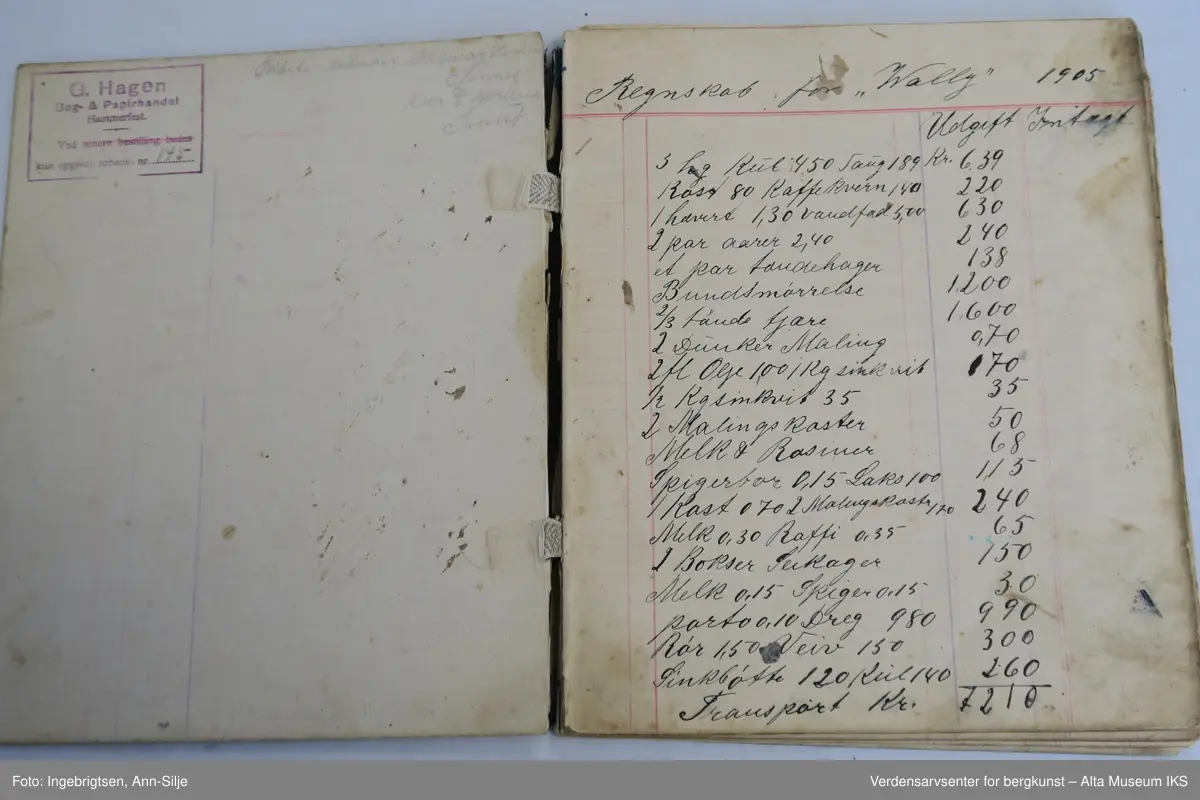 G. Hagen
Bog- & Papirhandel
Hammerfest.
Ved senere bestilling bedes
kun opgivet schema nr. 145
Tromsø
Regnskab for „Wally” 1905
Udgift Intagt
1
3 hg Kul 4,50 Taug 189 Kr. 6,39
Kost 80 Kaffekvern 140 220
1 hævert 1,30 vandfad 5,00 630
2 par aarer 2,40 240
et par tøndehager 138
Bundsmørrelse 1200
2/3 tønde tjære 1600
2 Dunker Maling 0,70
2 fl Olje 100 1 Kg sinkvit 170
1/2 Kg sinkvit 35 35
2 Malingskoster 50
Melk & Rosiner 68
Spigerbor 0,15 Laks 100 115
1 Kost 070 2 Malingskoster 170 240
Melk 0,30 Kaffi 0,35 65
2 Bokser 150
Melk 0,15 Spiger 0,15 30
porto 0,10 Dreg 980 990
Rør 1,50 Veiv 150 300
Sinkbøtte 120 Kul 140 260
Transport Kr. 7210
Foto: Ingebrigtsen, Ann-Silje
Verdensarvsenter for bergkunst – Alta Museum IKS